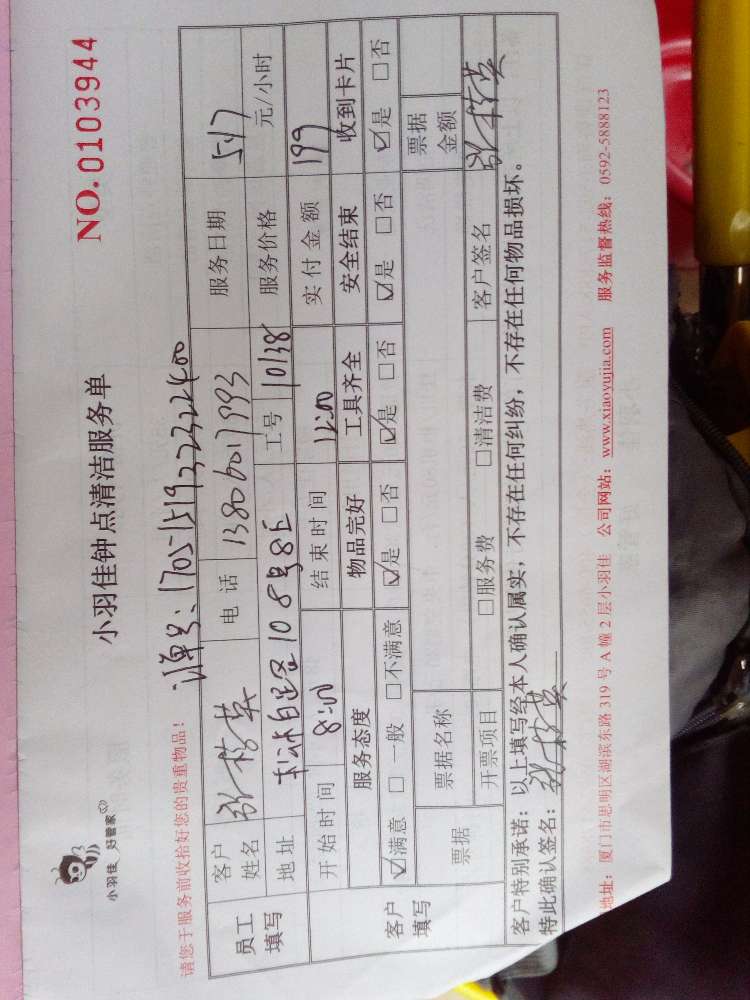 小羽佳 好管家
小羽佳钟点清洁服务单
NO.0103944
请您于服务前收拾好您的贵重物品!
单号:170515193223222400
员工填写 客户姓名 电话 13806017993 服务日期 5.17
地址 108号8E 工号 10138 服务价格 元/小时
开始时间 8:00 结束时间 12:00 实付金额 199
客户填写 服务态度 物品完好 工具齐全 安全结束 收到卡片
☑满意 □一般 □不满意 ☑是 □否 ☑是 □否 ☑是 □否 ☑是 □否
票据 票据名称 票据金额
开票项目 □服务费 □清洁费 客户签名
客户特别承诺:以上填写经本人确认属实,不存在任何纠纷,不存在任何物品损坏。
特此确认签名:
地址:厦门市思明区湖滨东路 319 号 A 幢 2 层小羽佳 公司网站:www.xiaoyujia.com 服务监督热线:0592-5888123